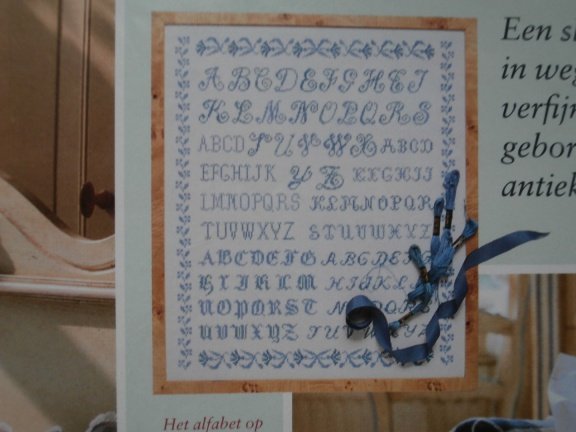 Een
in
verfijn
gebor
antiek
ABCDEFGHIJ
KLMNOPQRS
ABCD T U V W X ABCD
EFGHIJK Y Z EFGHIJ
LMNOPQRS KLMNOPQR
TUVWXYZ STUVWXYZ
ABCDEFG ABCDEFG
HIJKLM HIJKLM
NOPQRST NOPQRS
UVWXYZ TUV
Het alfabet op